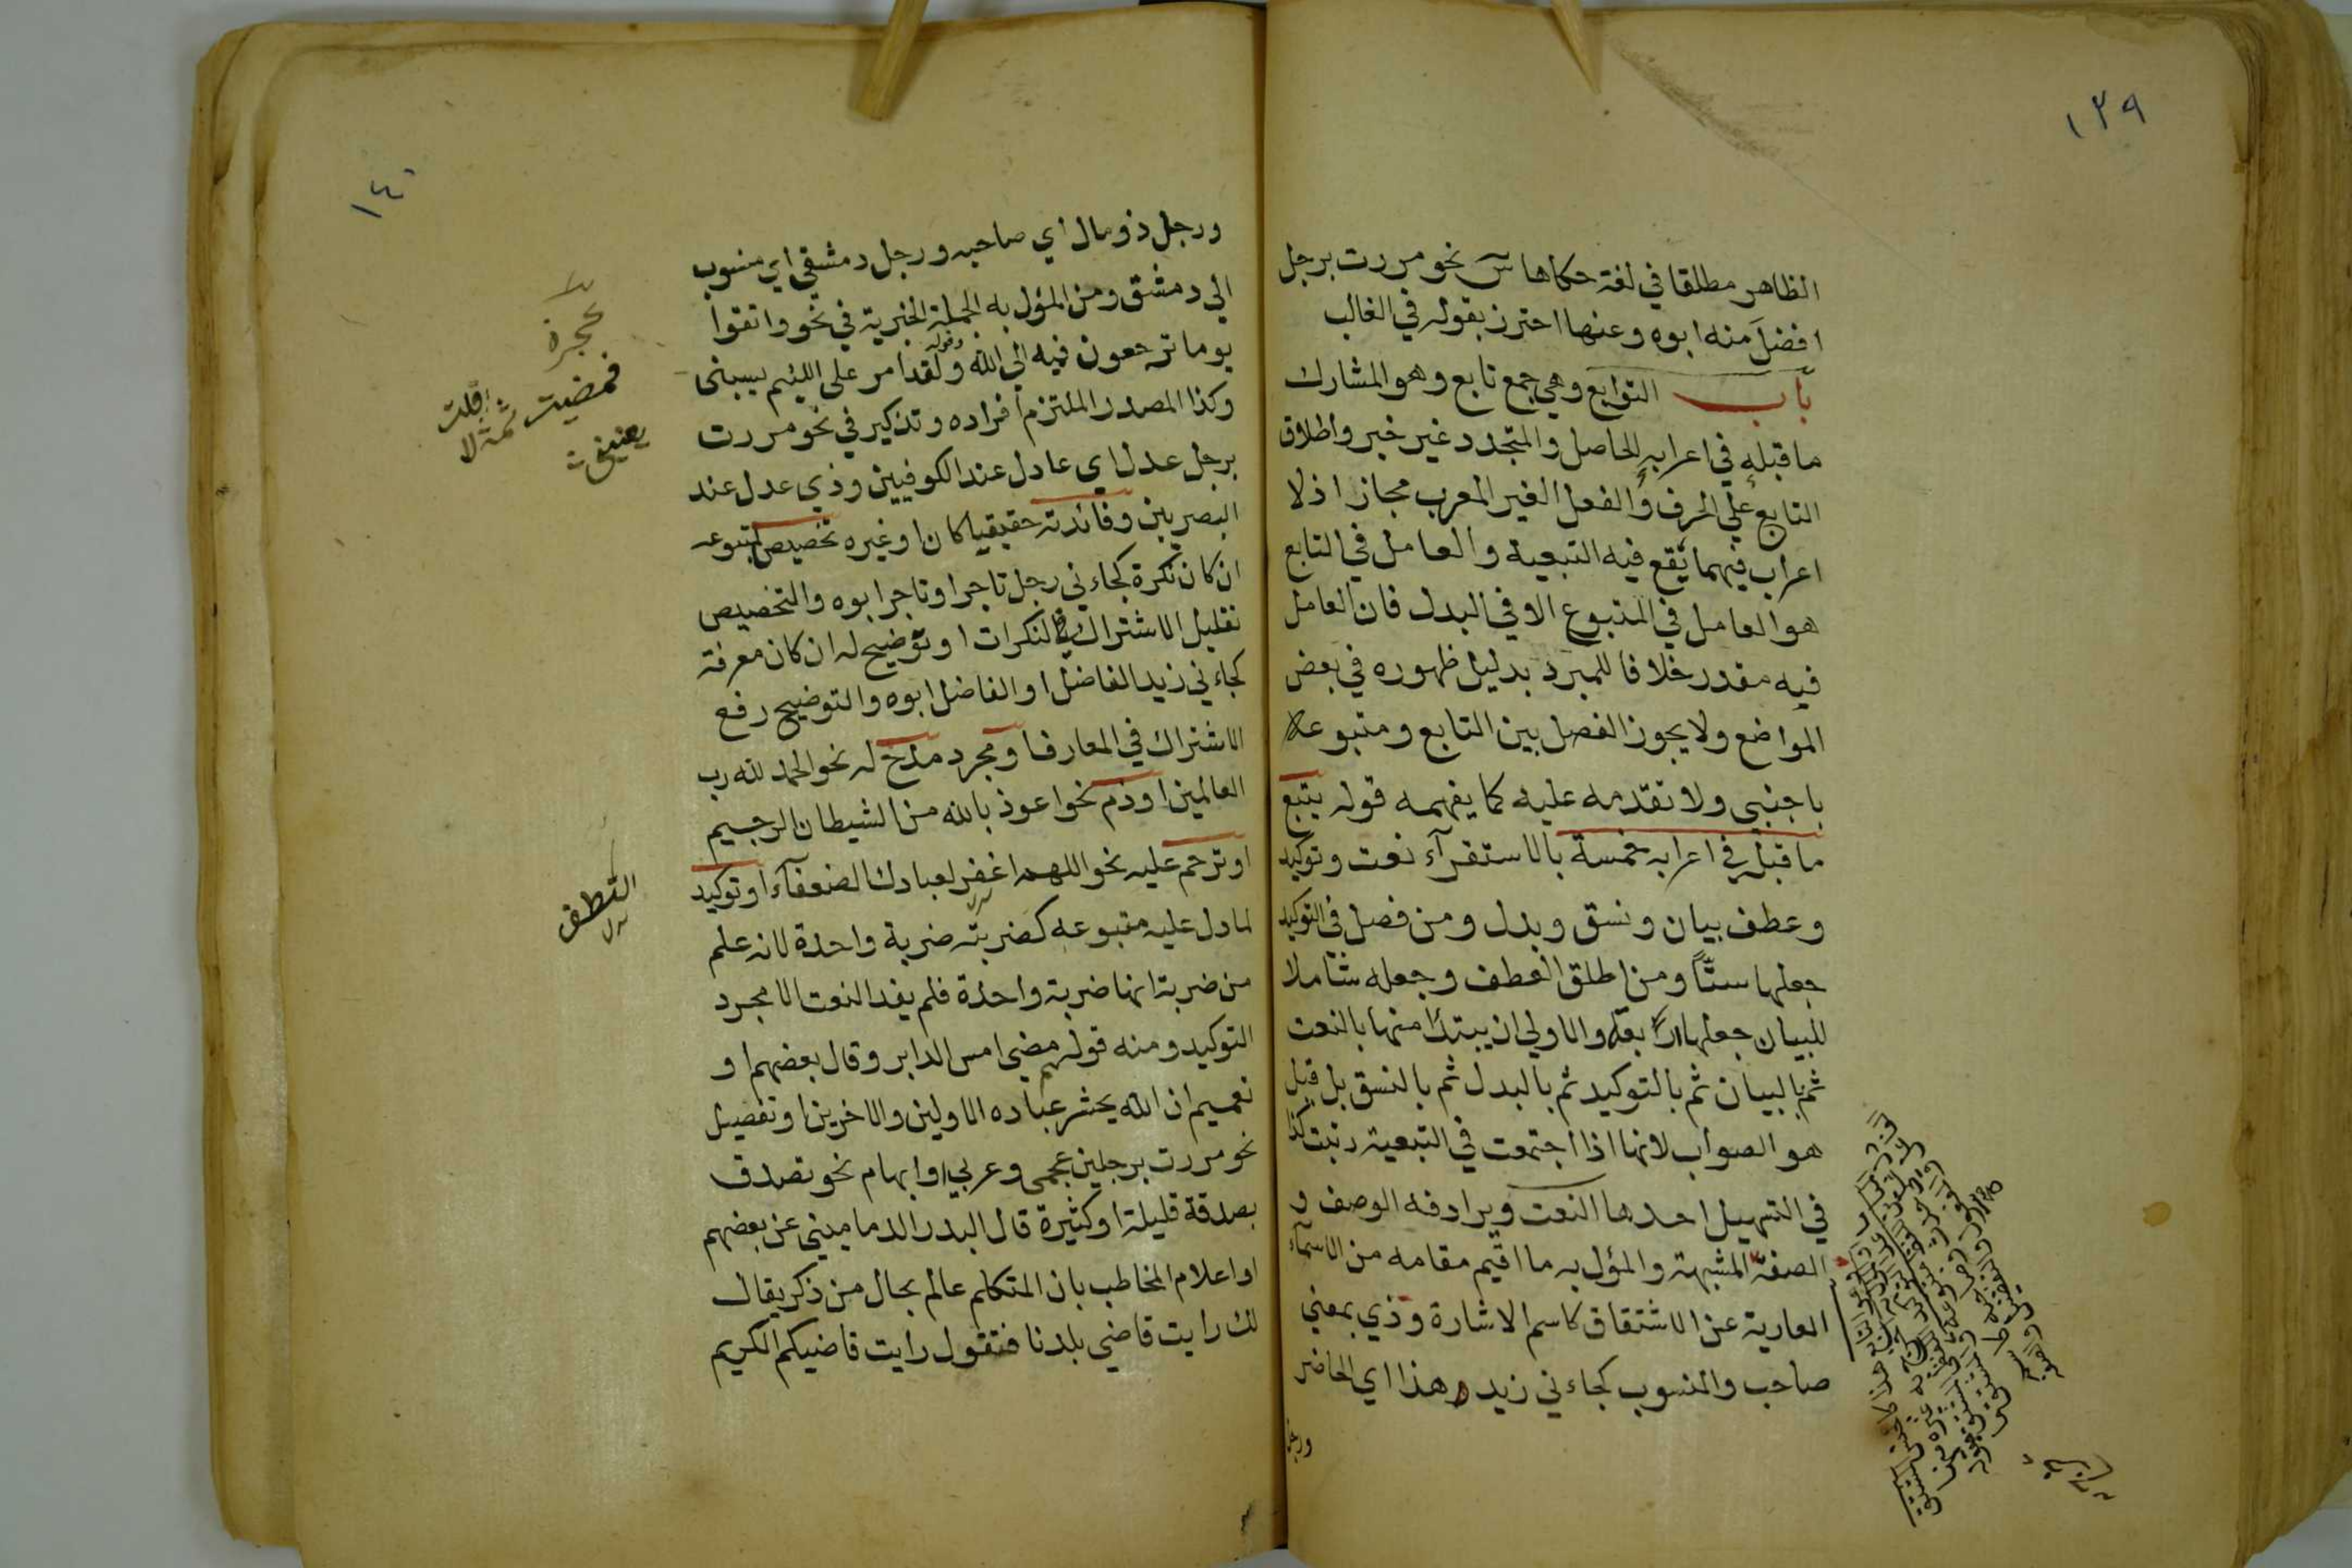 ١٣٩
الظاهر مطلقا في لغة حكاها س نحو مررت برجل
افضلَ منه ابوه وعنها احترز بقوله في الغالب
باب التوابع وهي جمع تابع وهو المشارك
ما قبله في اعرابه الحاصل والمتجدد غير خبر واطلاق
التابع علي الحرف والفعل الغير المعرب مجاز اذ لا
اعراب فيهما تقع فيه التبعية والعامل في التابع
هو العامل في المتبوع الا في البدل فان العامل
فيه مقدر خلافا للمبرد بدليل ظهوره في بعض
المواضع ولا يجوز الفصل بين التابع ومتبوعه
باجنبي ولا تقدمه عليه كما يفهمه قوله يتبع
ما قبله في اعرابه خمسة بالاستقرآء نعت وتوكيد
وعطف بيان ونسق وبدل ومن فصل في التوكيد
جعلها ستًّا ومن اطلق العطف وجعله شاملا
للبيان جعلها اربعة والاولي ان يبتدأ منها بالنعت
ثم بالبيان ثم بالتوكيد ثم بالبدل ثم بالنسق بل قيل
هو الصواب لانها اذا اجتمعت في التبعية رتبت كذا
في التسهيل احدها النعت ويرادفه الوصف و
الصفة المشبهة والمؤل به ما اقيم مقامه من الاسماء
العارية عن الاشتقاق كاسم الاشارة وذي بمعني
صاحب والمنسوب كجاءني زيد هذا اي الحاضر
ورجل
١٤٠
ورجل ذو مال اي صاحبه ورجل دمشقي اي منسوب
الي دمشق ومن المؤل به الجملة الخبرية في نحو واتقوا
يوما ترجعون فيه الي الله وقوله ولقد امر علي اللئيم يسبني
وكذا المصدر الملتزم افراده وتذكير في نحو مررت
برجل عدل اي عادل عند الكوفيين وذي عدل عند
البصريين وفائدته حقيقيا كان او غيره تخصيص لمتبوعه
ان كان نكرة كجاءني رجل تاجر او تاجر ابوه والتخصيص
تقليل الاشتراك في النكرات او توضيح له ان كان معرفة
كجاءني زيد الفاضل او الفاضل ابوه والتوضيح رفع
الاشتراك في المعارف او مجرد مدح له نحو الحمد لله رب
العالمين او ذم نحو اعوذ بالله من الشيطان الرجيم
او ترحم عليه نحو اللهم اغفر لعبادك الضعفآء او توكيد
لما دل عليه متبوعه كضربته ضربة واحدة لانه علم
من ضربة انها ضربة واحدة فلم يفد النعت الا مجرد
التوكيد ومنه قولهم مضي امس الدابر وقال بعضهم او
تعميم ان الله يحشر عباده الاولين والاخرين او تفصيل
نحو مررت برجلين عجمي وعربي او ابهام نحو تصدق
بصدقة قليلة او كثيرة قال البدر الدماميني عن بعضهم
او اعلام المخاطب بان المتكلم عالم بحال من ذكر يقال
لك رايت قاضي بلدنا فتقول رايت قاضيكم الكريم
عجزه
فمضيت ثمة قلت لا
يعنيني